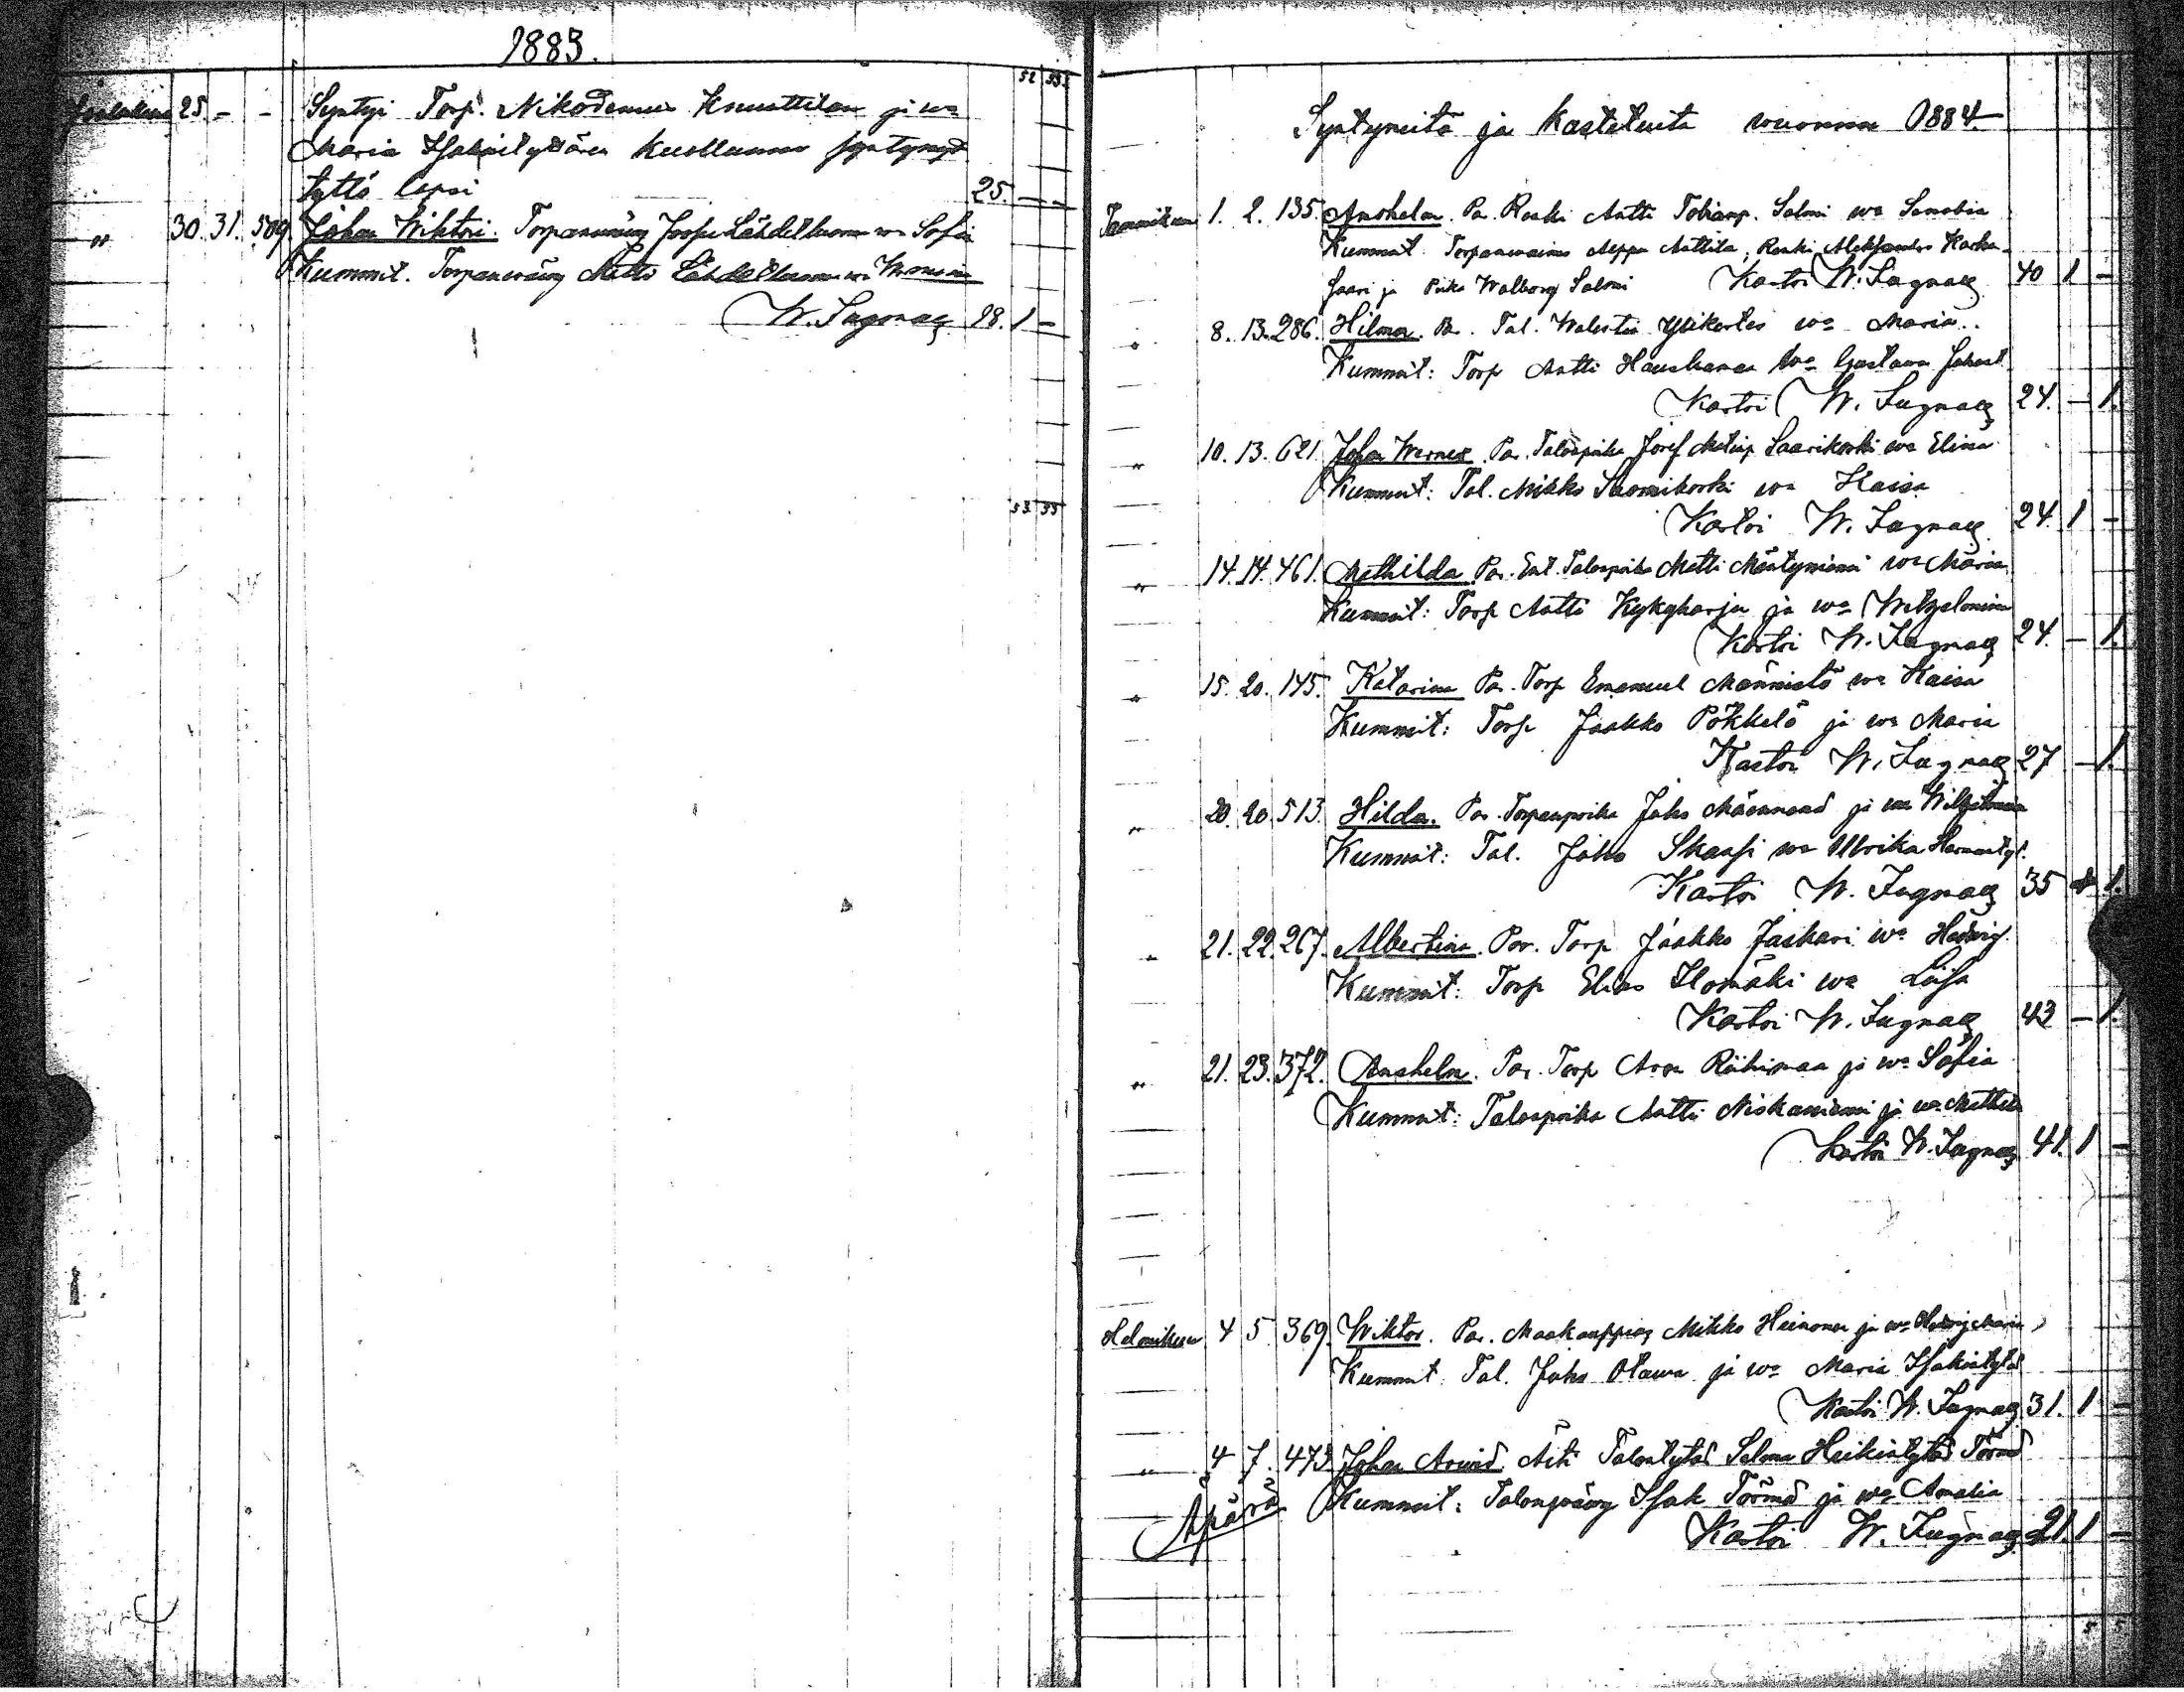 1883.
52 53
Joulukuu 25 - - Syntyi Torp. Nikodemus Knuuttilan ja wa
Maria Isakintyttären kuolluna syntynyt
tyttö lapsi 25. - -
" 30. 31. 509. Johan Wiktori. Torpanwäwy Joose Lähdelluoma wa Sofia
Kummit. Torpanwäwy Matti Lähdelluoma wa
W. Lagnas 28. 1 -
53 33
Syntyneitä ja kastetuita wuonna 1884.
Tammikuu 1. 2. 135. Anshelm. Par. Renki Antti Tobianp. Salmi wa Senobia
Kummit. Torpanwaimo Antila, Renki Aleksander
saari ja Piika Walborg Salmi Kastoi W. Lagnas 40 1 -
" 8. 13. 286. Hilma. Par. Tal. Ylikertes wa Maria.
Kummit: Torp Antti wa Gustawa
Kastoi W. Lagnas 24. - 1.
" 10. 13. 621. Johan Werner Par. Talonpoika Josef Saarikoski wa Elina
Kummit: Tal. Mikko wa Kaisa
Kastoi W. Lagnas 24. 1 -
" 14. 14. 461. Mathilda Par. Ent. Talonpoika Matti Mäntyniemi wa Maria
Kummit: Torp Antti Kykyharju ja wa Wilhelmina
Kastoi W. Lagnas 24. - 1.
" 15. 20. 145. Katarina Par. Torp Emanuel Männistö wa Kaisa
Kummit: Torp Jaakko Pökkelö ja wa Maria
Kastoi W. Lagnas 27 - 1.
" 20. 20. 513. Hilda. Par. Torpanpoika Juho ja wa Wilhelmina
Kummit: Tal. Juho wa Ulrika
Kastoi W. Lagnas 35 1.
" 21. 22. 267. Albertina. Par. Torp Jaakko Jaskari wa Hedwig.
Kummit: Torp Elias Ilomäki wa Liisa
Kastoi W. Lagnas 43 - 1.
" 21. 23. 372. Anshelm. Par. Torp Riihimaa ja wa Sofia
Kummit: Talonpoika Antti Niskaniemi ja wa
Kastoi W. Lagnas 41. 1 -
Helmikuu 4 5 369. Wiktor. Par. Maakauppias Mikko Heinonen ja wa Hedwig Maria
Kummit. Tal. Juho Otawa ja wa Maria Isakintytär
Kastoi W. Lagnas 31. 1 -
" 4 7. 473. Johan Arwid Äiti Talontytär Selma Heikintytär Törmä
Äpärä Kummit: Talonwäwy Isak Törmä ja wa Amalia
Kastoi W. Lagnas 21. 1 -
5 5